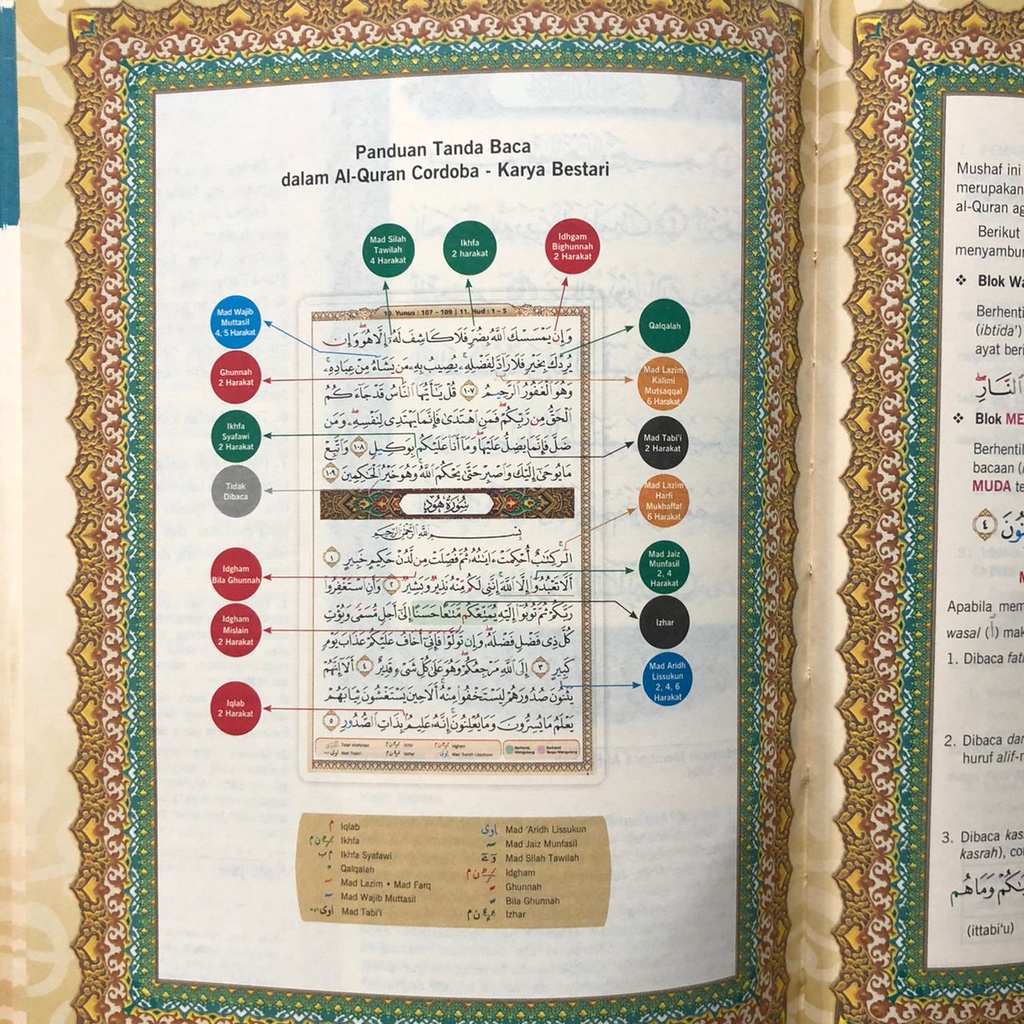 Panduan Tanda Baca
dalam Al-Quran Cordoba - Karya Bestari
Mad Silah
Tawilah
4 Harakat
Ikhfa
2 harakat
Idhgam
Bighunnah
2 Harakat
Mad Wajib
Muttasil
4, 5 Harakat
Ghunnah
2 Harakat
Ikhfa
Syafawi
2 Harakat
Tidak
Dibaca
Idgham
Bila Ghunnah
Idgham
Mislain
2 Harakat
Iqlab
2 Harakat
Qalqalah
Mad Lazim
Kalimi
Mutsaqqal
6 Harakat
Mad Tabi'i
2 Harakat
Mad Lazim
Harfi
Mukhaffaf
6 Harakat
Mad Jaiz
Munfasil
2, 4
Harakat
Izhar
Mad Aridh
Lissukun
2, 4, 6
Harakat
10. Yunus : 107 - 109 | 11. Hud : 1 - 5
وَإِن يَمْسَسْكَ اللَّهُ بِضُرٍّ فَلَا كَاشِفَ لَهُ إِلَّا هُوَ وَإِن
يُرِدْكَ بِخَيْرٍ فَلَا رَادَّ لِفَضْلِهِ يُصِيبُ بِهِ مَن يَشَاءُ مِنْ عِبَادِهِ
وَهُوَ الْغَفُورُ الرَّحِيمُ ١٠٧ قُلْ يَا أَيُّهَا النَّاسُ قَدْ جَاءَكُمُ
الْحَقُّ مِن رَّبِّكُمْ فَمَنِ اهْتَدَىٰ فَإِنَّمَا يَهْتَدِي لِنَفْسِهِ وَمَن
ضَلَّ فَإِنَّمَا يَضِلُّ عَلَيْهَا وَمَا أَنَا عَلَيْكُم بِوَكِيلٍ ١٠٨ وَاتَّبِعْ
مَا يُوحَىٰ إِلَيْكَ وَاصْبِرْ حَتَّىٰ يَحْكُمَ اللَّهُ وَهُوَ خَيْرُ الْحَاكِمِينَ ١٠٩
سُورَةُ هُودٍ
بِسْمِ اللَّهِ الرَّحْمَٰنِ الرَّحِيمِ
الر كِتَابٌ أُحْكِمَتْ آيَاتُهُ ثُمَّ فُصِّلَتْ مِن لَّدُنْ حَكِيمٍ خَبِيرٍ ١
أَلَّا تَعْبُدُوا إِلَّا اللَّهَ إِنَّنِي لَكُم مِّنْهُ نَذِيرٌ وَبَشِيرٌ ٢ وَأَنِ اسْتَغْفِرُوا
رَبَّكُمْ ثُمَّ تُوبُوا إِلَيْهِ يُمَتِّعْكُم مَّتَاعًا حَسَنًا إِلَىٰ أَجَلٍ مُّسَمًّى وَيُؤْتِ
كُلَّ ذِي فَضْلٍ فَضْلَهُ وَإِن تَوَلَّوْا فَإِنِّي أَخَافُ عَلَيْكُمْ عَذَابَ يَوْمٍ
كَبِيرٍ ٣ إِلَى اللَّهِ مَرْجِعُكُمْ وَهُوَ عَلَىٰ كُلِّ شَيْءٍ قَدِيرٌ ٤ أَلَا إِنَّهُمْ
يَثْنُونَ صُدُورَهُمْ لِيَسْتَخْفُوا مِنْهُ أَلَا حِينَ يَسْتَغْشُونَ ثِيَابَهُمْ
يَعْلَمُ مَا يُسِرُّونَ وَمَا يُعْلِنُونَ إِنَّهُ عَلِيمٌ بِذَاتِ الصُّدُورِ ٥
م Iqlab
Ikhfa
م ب Ikhfa Syafawi
Qalqalah
Mad Lazim • Mad Farq
Mad Wajib Muttasil
أوى Mad Tabi'i
أوى Mad 'Aridh Lissukun
Mad Jaiz Munfasil
Mad Silah Tawilah
Idgham
Ghunnah
Bila Ghunnah
Izhar
Mushaf ini
merupakan
al-Quran ag
Berikut
menyambu
❖ Blok Wa
Berhenti
(ibtida')
ayat beri
النَّارِ
❖ Blok ME
Berhentil
bacaan (
MUDA te
٤
Apabila mem
wasal (أ) mak
1. Dibaca fat
2. Dibaca dar
huruf alif-r
3. Dibaca kas
kasrah), co
وَمَاهُم
(ittabi'u)